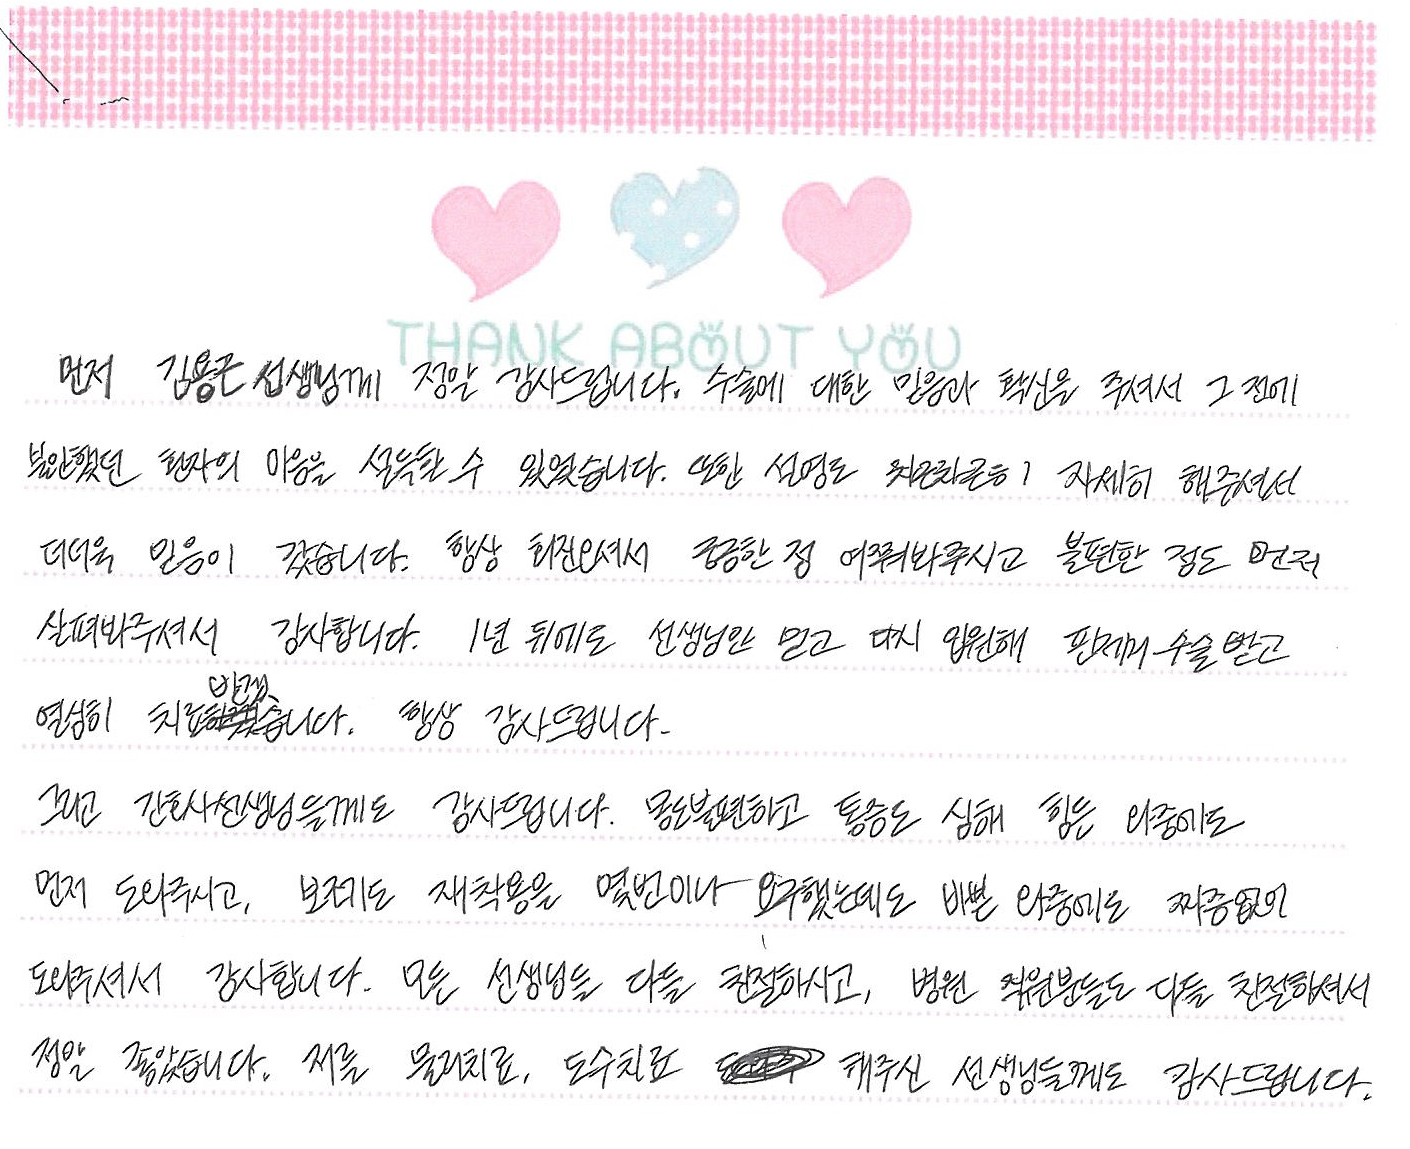 THANK ABOUT YOU
먼저 김용근 선생님께 정말 감사드립니다. 수술에 대한 믿음과 확신을 주셔서 그 전에
불안했던 환자의 마음을 설득할 수 있었습니다. 또한 설명도 차근차근히 자세히 해주셔서
더더욱 믿음이 갔습니다. 항상 회진오셔서 궁금한 점 여쭤봐주시고 불편한 점도 먼저
살펴봐주셔서 감사합니다. 1년 뒤에도 선생님만 믿고 다시 입원해 핀제거 수술 받고
열심히 치료받겠습니다. 항상 감사드립니다.
그리고 간호사선생님들께도 감사드립니다. 몸도불편하고 통증도 심해 힘든 와중에도
먼저 도와주시고, 보조기도 재착용을 몇번이나 요구했는데도 바쁜 와중에도 짜증없이
도와주셔서 감사합니다. 모든 선생님들 다들 친절하시고, 병원 직원분들도 다들 친절하셔서
정말 좋았습니다. 저를 물리치료, 도수치료 해주신 선생님들께도 감사드립니다.